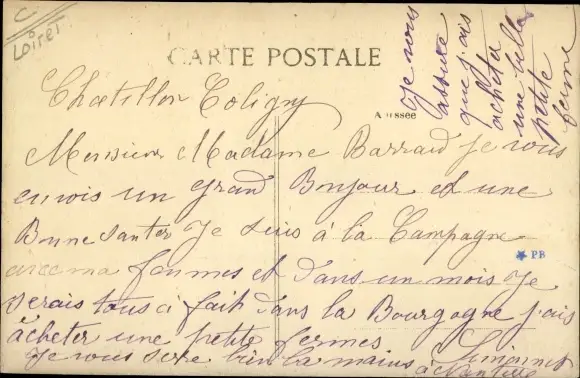 C
Loiret
CARTE POSTALE
Chatillon Coligny
Monsieur Madame Barraud je vous
envois un grand Bonjour et une
Bonne santer je suis à la Campagne
avec ma femmes et dans un mois je
serais tous a fait dans la Bourgogne j'ais
acheter une petite fermes
je vous sere bien la mains
Simonnet
à
je vous
assure
que j'ais
acheter
une belle
petite
ferme
PB